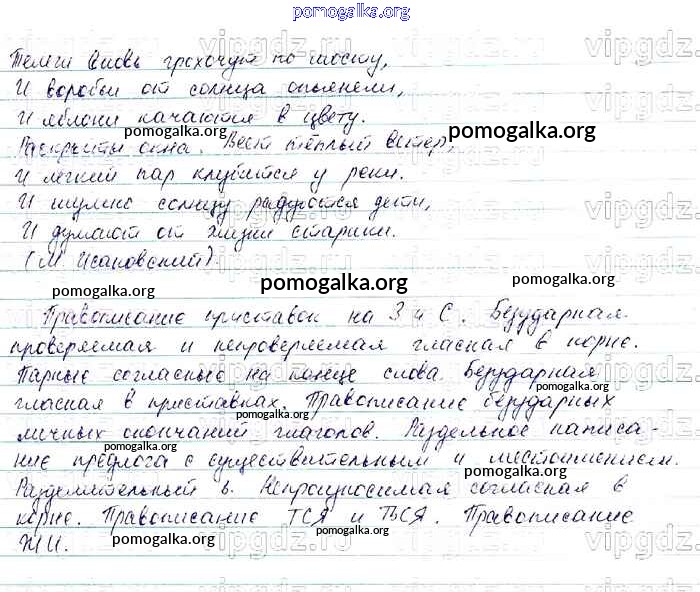 pomogalka.org
Телеги вновь грохочут по мосту,
И воробьи от солнца опьянели,
И яблони качаются в цвету.
pomogalka.org pomogalka.org
Раскрыты окна. Веет тёплый ветер,
И легкий пар клубится у реки.
И шумно солнцу радуются дети,
И думают от жизни старики.
(М. Исаковский).
pomogalka.org pomogalka.org pomogalka.org
Правописание приставок на З и С. Безударная
проверяемая и непроверяемая гласная в корне.
Парные согласные на конце слова. Безударная
pomogalka.org
гласная в приставках. Правописание безударных
pomogalka.org
личных окончаний глаголов. Раздельное написа-
pomogalka.org
ние предлога с существительным и местоимением.
pomogalka.org
Разделительный ь. Непроизносимая согласная в
корне. Правописание ТСЯ и ТЬСЯ. Правописание
ЖИ.
pomogalka.org pomogalka.org
vipgdz.ru